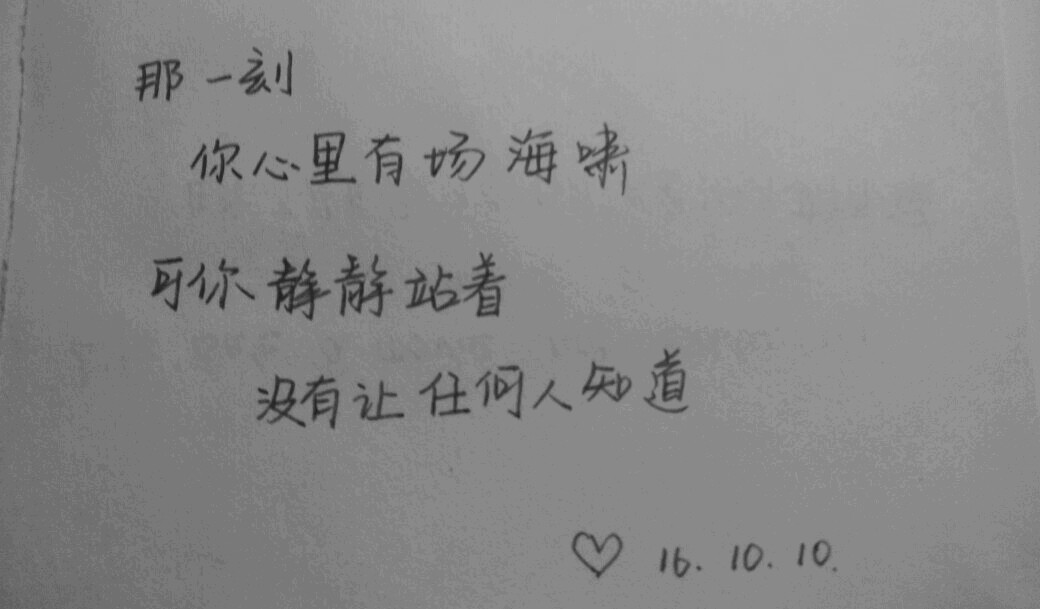 那一刻
你心里有场海啸
可你静静站着
没有让任何人知道
♡ 16.10.10.